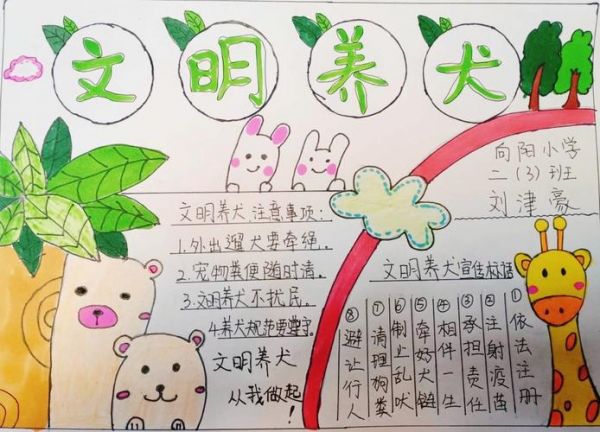 文明养犬
向阳小学
二(3)班
刘津豪
文明养犬注意事项:
1.外出遛犬要牵绳。
2.宠物粪便随时清。
3.文明养犬不扰民。
4.养犬规范要
文明养犬
从我做起!
文明养犬宣传标语
①依法注册
②注射疫苗
③承担责任
④相伴一生
⑤牵好犬链
⑥制止乱吠
⑦清理狗粪
⑧避让行人